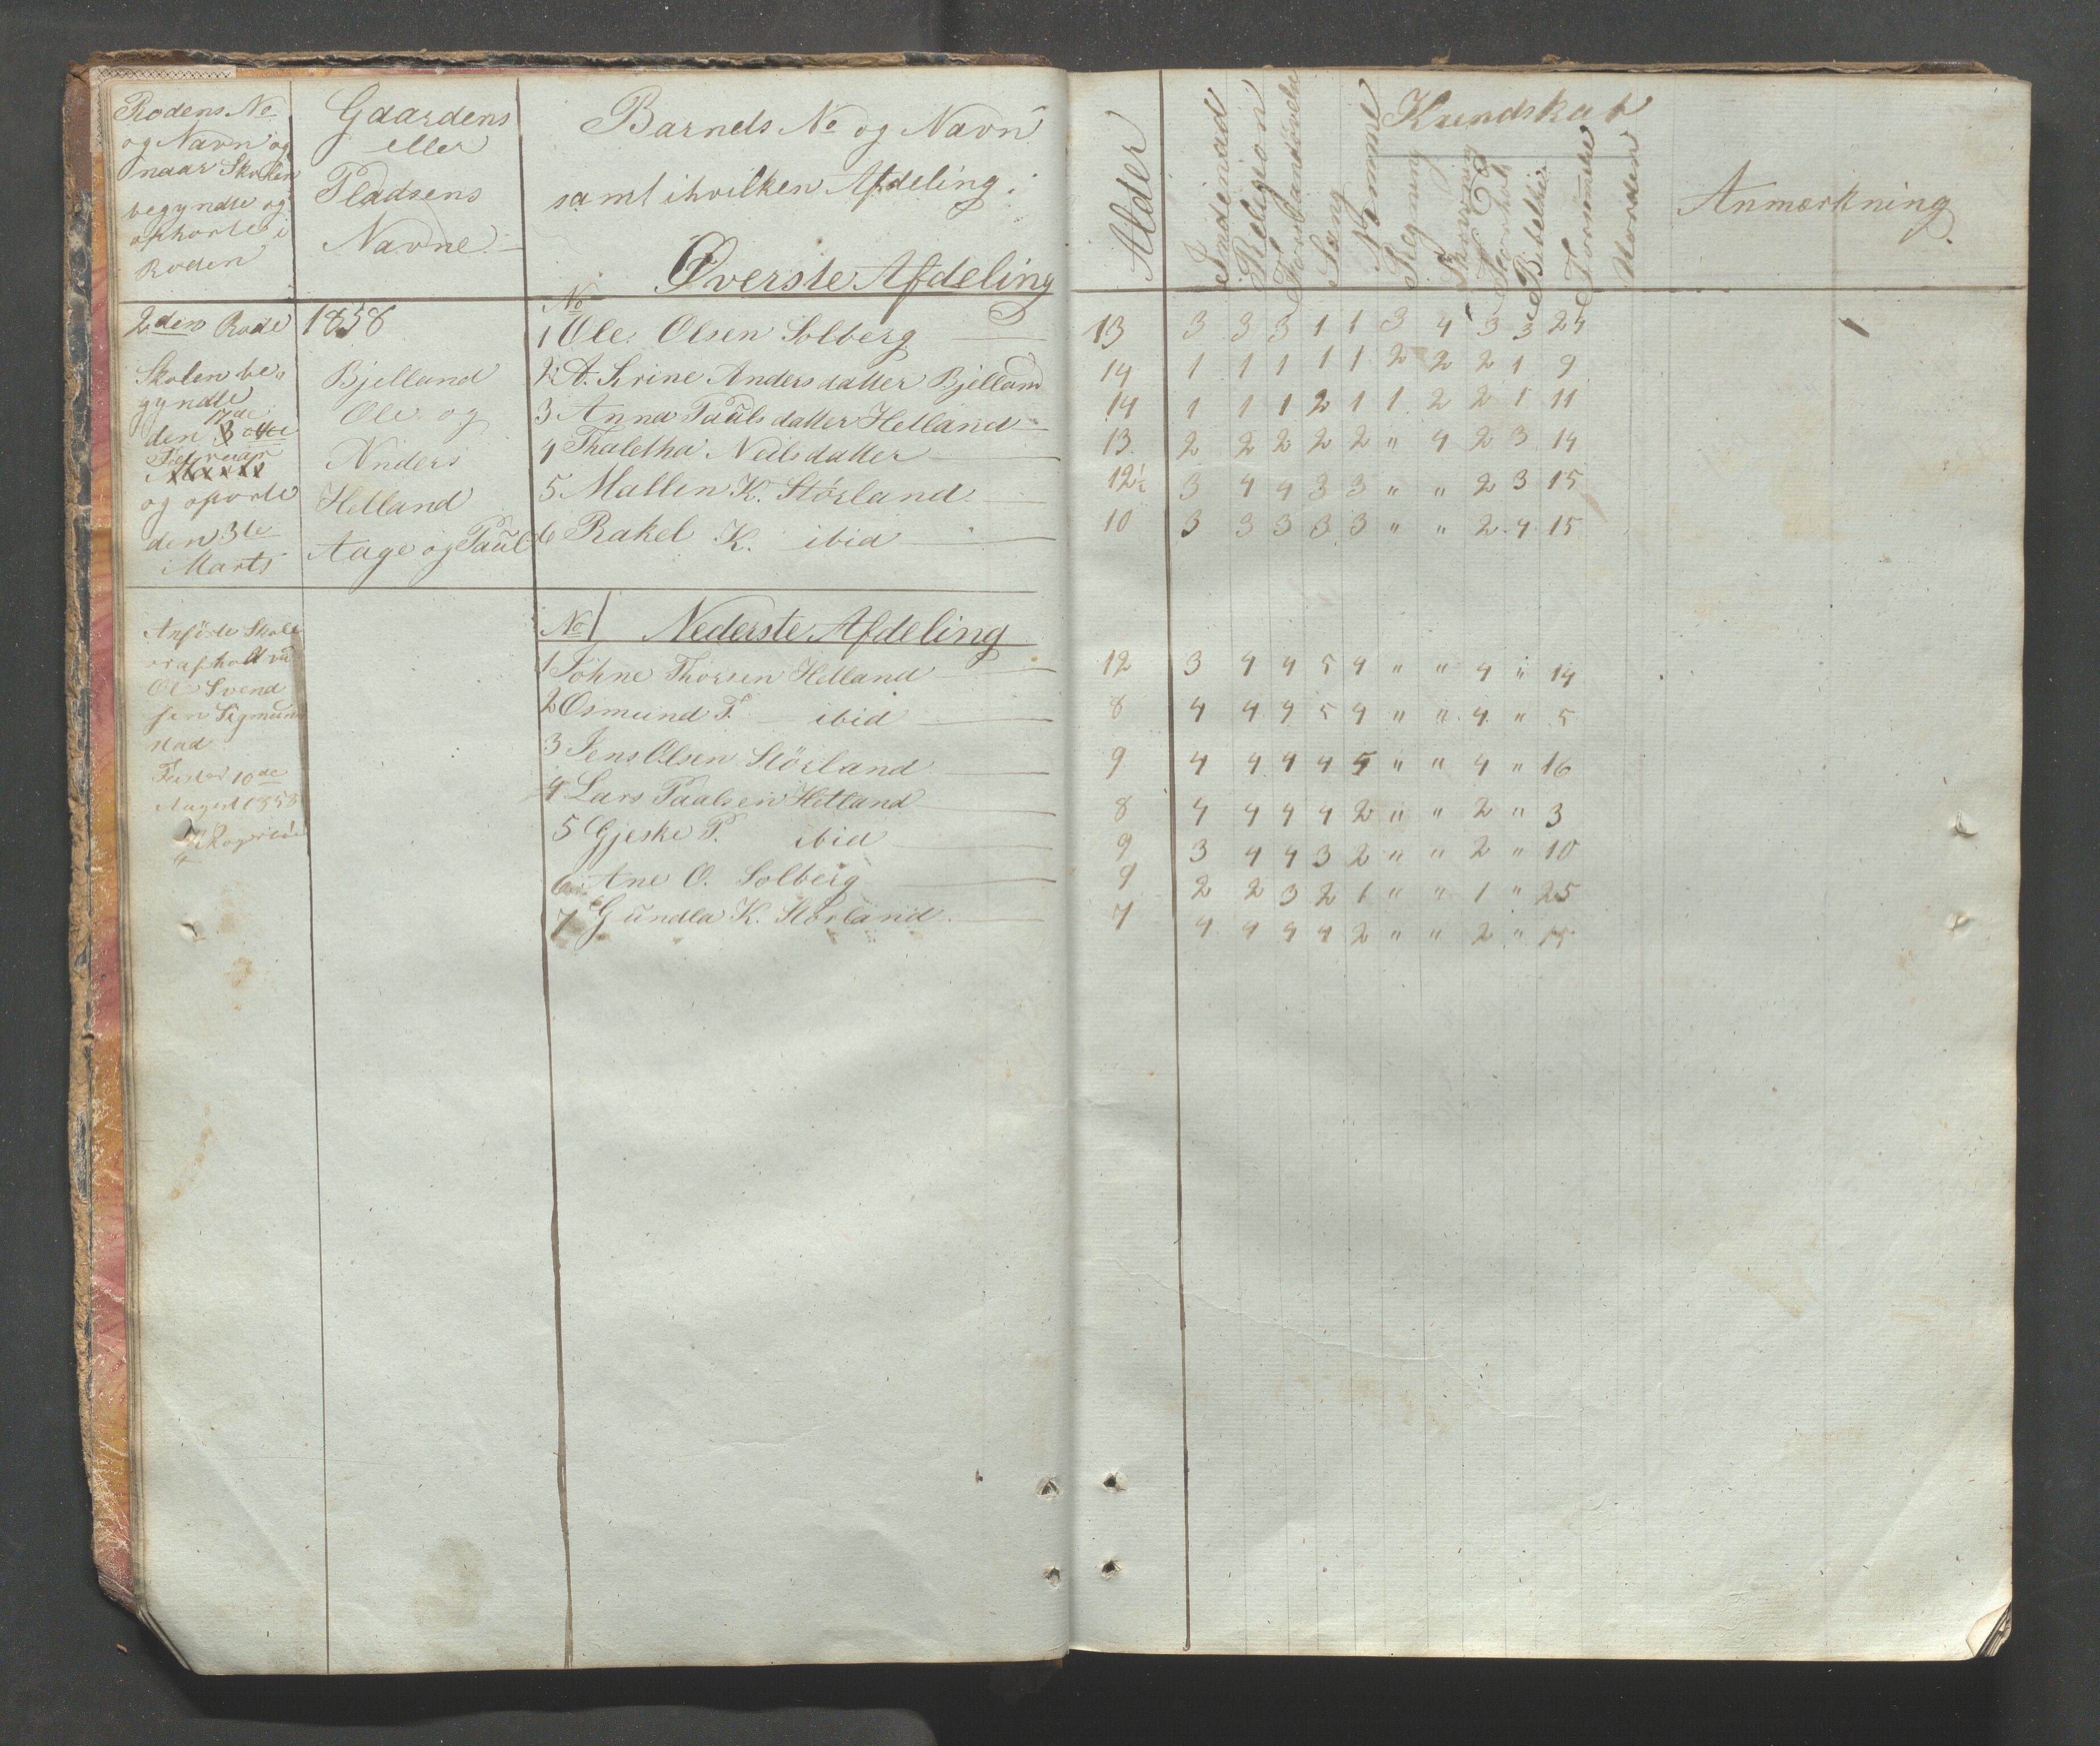 Rodens No
og Navn og
naar Skolen
begyndte og
ophørte i
Roden
Gaardens
eller
Pladsens
Navne
Barnets No og Navn
samt i hvilken Afdeling.
Øverste Afdeling
Alder
Indenad
Religion
Forstandsøvelse
Sang
Nemme
Kundskab
Regning
Skrivning
Flid
Forhold
Bibelhis
Forsømte
Uorden
Anmærkning
2den Rode
Skolen be„
gyndte
17de
den 3 
Februar
Marts
og oporte
den 3te
Marts
1858
Bjelland
Ole og
Anders
Helland
Aage og Paul
No
1 Ole Olsen Solberg 13 3 3 3 1 1 3 4 3 3 24
2 A. Serine Andersdatter Bjelland 14 1 1 1 1 1 2 2 2 1 9
3 Anna Paulsdatter Helland 14 1 1 1 2 1 1 2 2 1 11
4 Thaletha Neilsdatter 13 2 2 2 2 2 " 4 2 3 14
5 Mallen K. Störland 12½ 3 4 4 3 3 " " 2 3 15
6 Rakel K. ibid 10 3 3 3 3 3 " " 2 4 15
Anførte Skole
er afholt ved
Ol Svend
sen Sigmun
stad
10de
August 1858
No Nederste Afdeling
1 Töhne Thorsen Helland 12 3 4 4 5 4 " " 4 " 14
2 Osmund T. ibid 8 4 4 4 5 4 " " 4 " 5
3 Jens Olsen Störland 9 4 4 4 4 5 " " 4 " 16
4 Lars Paalsen Helland 8 4 4 4 4 2 " " 2 " 3
5 Gjeske P. ibid 9 3 4 4 3 2 " " 2 " 10
6 Ane O. Solberg 9 2 2 3 2 1 " " 1 " 25
7 Gundla K. Störland 7 4 4 4 4 2 " " 2 " 15